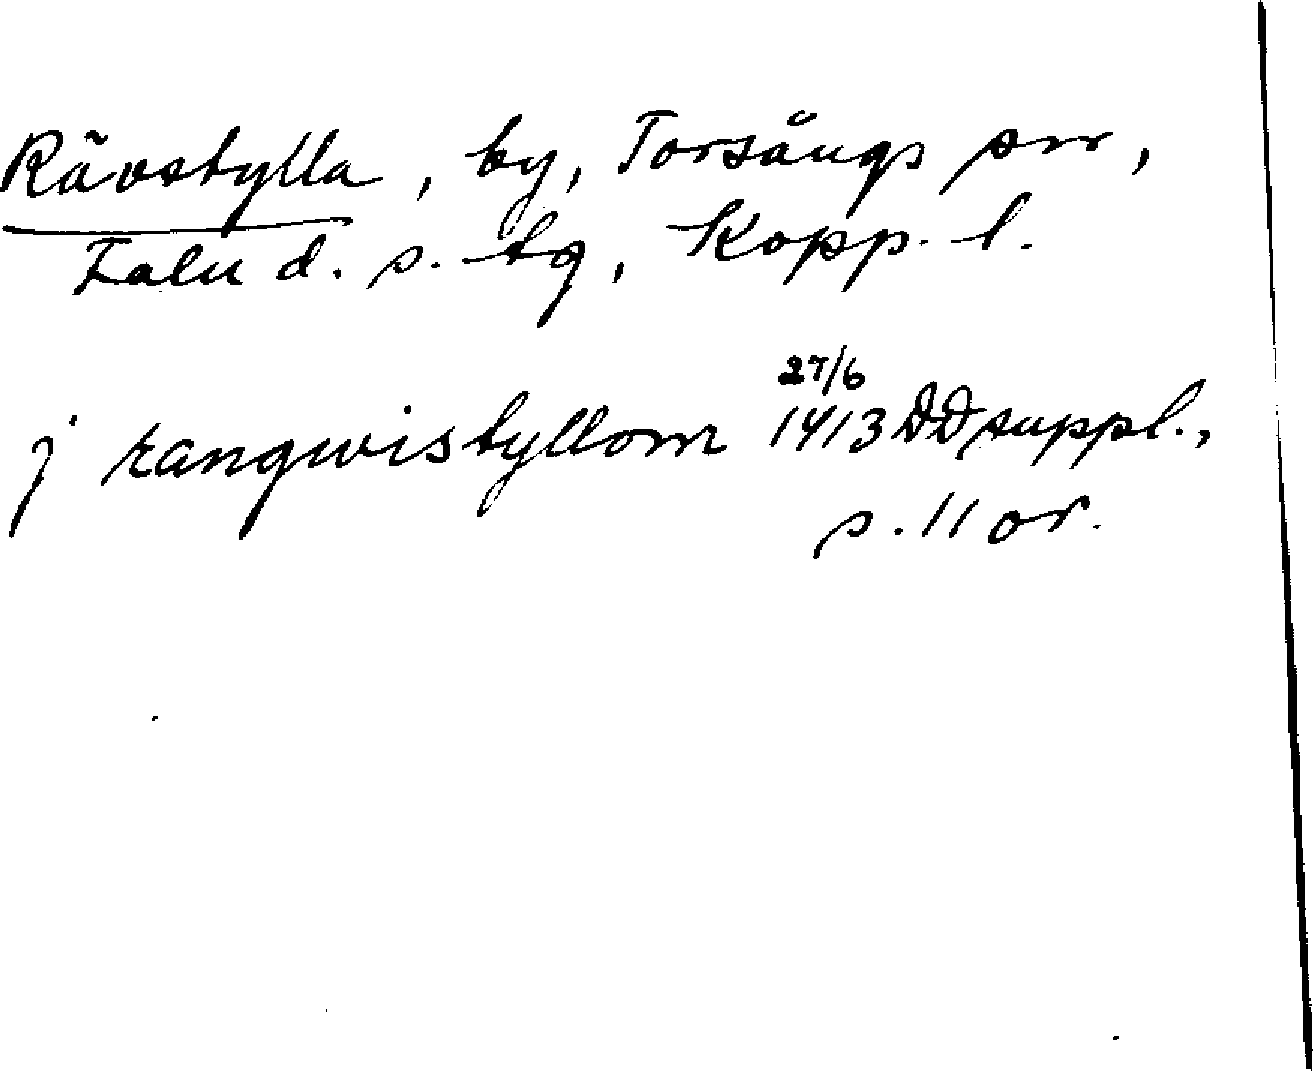 Rävstylla, by, Torsångs sn,
Falu d. s. tg, Kopp. l.
27/6
j rangwistyllom 1413 DD suppl.,
s. 11 or.